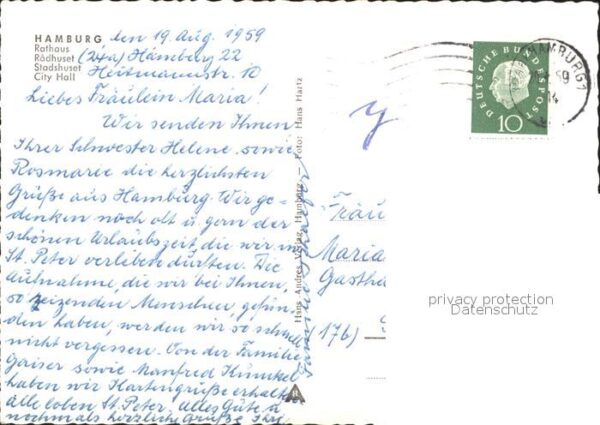 HAMBURG den 19. Aug. 1959
Rathaus
Rådhuset (24a) Hamburg 22
Stadshuset
City Hall Heitmannstr. 10
Liebes Fräulein Maria!
Wir senden Ihnen
Ihrer Schwester Helene sowie
Rosmarie die herzlichsten
Grüße aus Hamburg. Wir ge-
denken noch oft u. gern der
schönen Urlaubszeit, die wir in
St. Peter verleben durften. Die
Aufnahme, die wir bei Ihnen,
so reizenden Menschen, gefun-
den haben, werden wir so schnell
nicht vergessen. Von der Familie
Gaiser sowie Manfred Kunkel
haben wir Kartengrüße erhalten
alle loben St. Peter. Alles Gute u
nochmals herzliche Grüße Ihre
Hans Andres Verlag, Hamburg
Foto: Hans Hartz
HAMBURG 1
DEUTSCHE BUNDESPOST
10
Fräu
Maria
Gastha
(17b)
privacy protection
Datenschutz